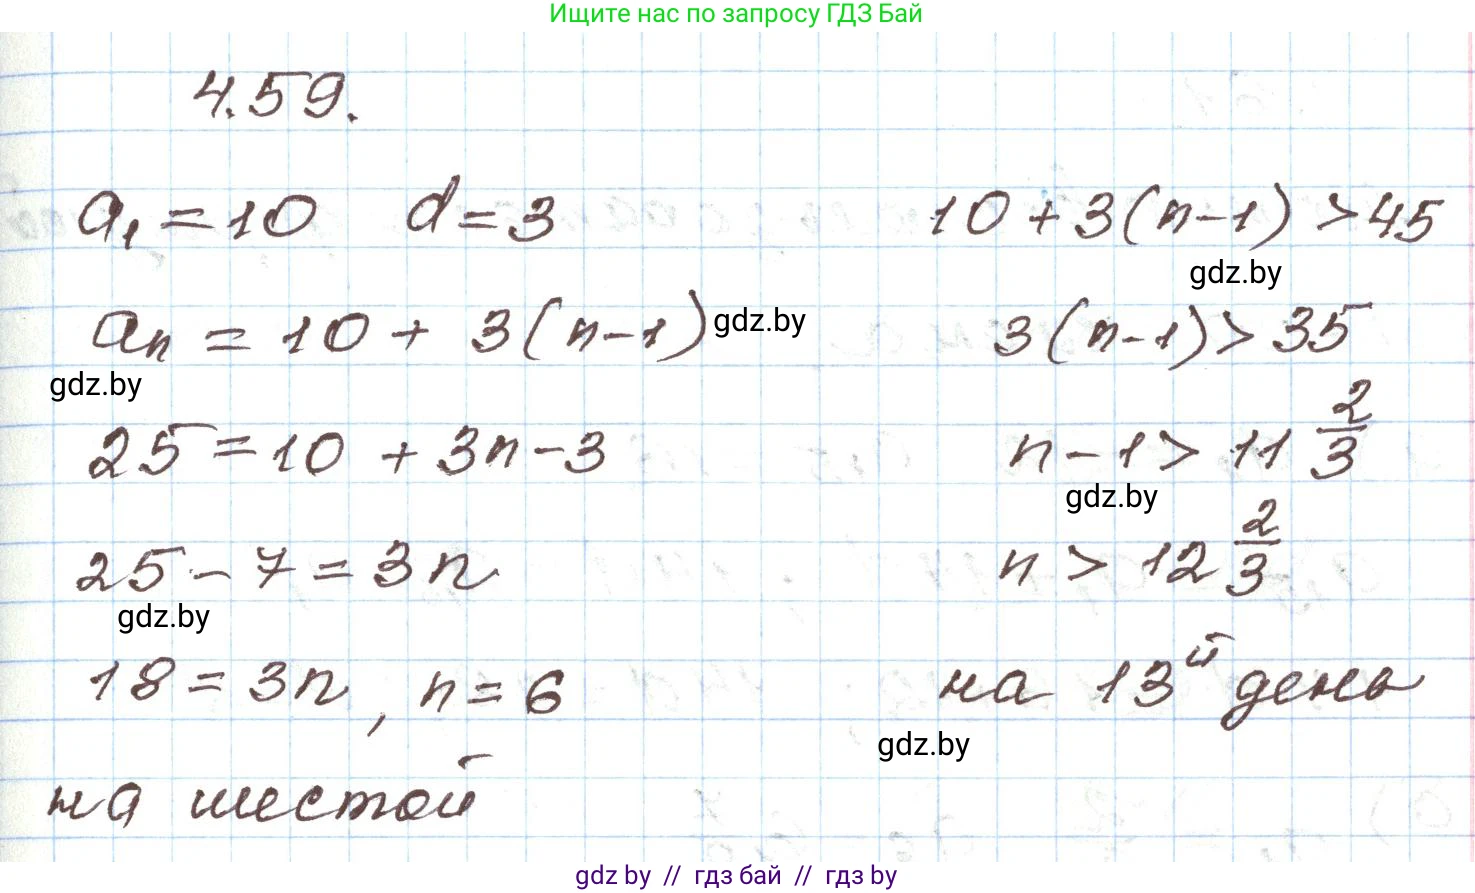 Ищите нас по запросу ГДЗ Бай
4.59.
a₁ = 10 d = 3
aₙ = 10 + 3(n-1)
gdz.by
gdz.by
25 = 10 + 3n - 3
25 - 7 = 3n
gdz.by
18 = 3n, n = 6
на шестой
10 + 3(n-1) > 45
gdz.by
3(n-1) > 35
n - 1 > 11 2/3
gdz.by
n > 12 2/3
на 13й день
gdz.by
gdz by // гдз бай // гдз by